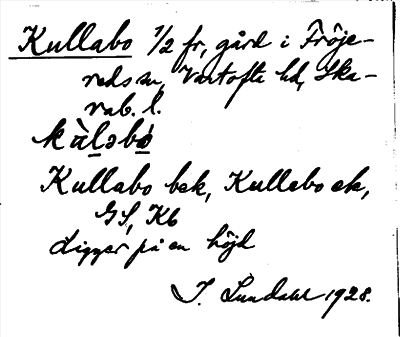 Kullabo 1/2 fr, gård i Fröje-
reds sn, Vartofta hd, Ska-
rab. l.
kùləbó
Kullabo bsk, Kullabo ek,
GS, Kb
ligger på en höjd
I. Lundahl 1928.